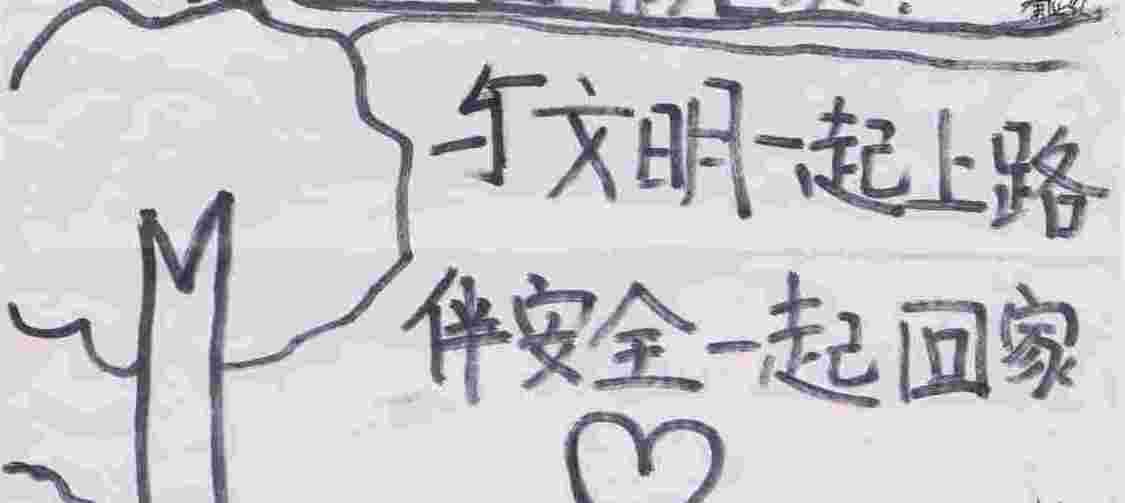 与文明一起上路
伴安全一起回家